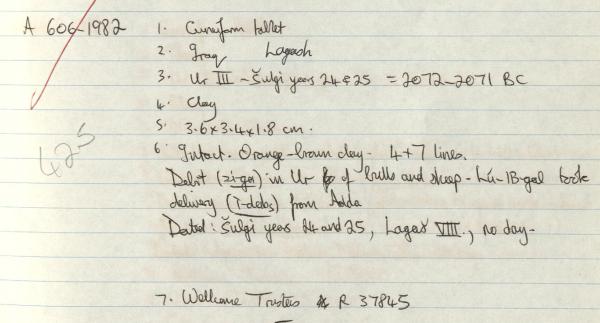 A 606-1982 1. Cuneiform tablet
2. Iraq Lagash
3. Ur III - Šulgi years 24 & 25 = 2072-2071 BC
4. Clay
5. 3.6 x 3.4 x 1.8 cm.
425
6. Intact. Orange-brown clay - 4+7 lines.
Debit (zi-ga) in Ur of bulls and sheep - Lú-IB-gal took
delivery (Ì-dab5) from Adda
Dated: Šulgi years 24 and 25, Lagaš VIII., no day-
7. Wellcome Trustees R 37845